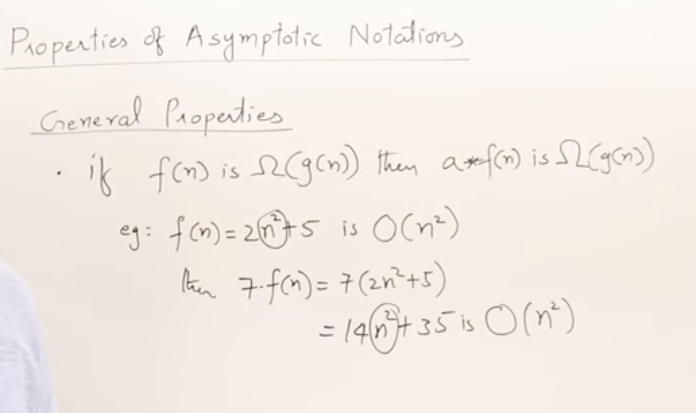 Properties of Asymptotic Notations
General Properties
· if f(n) is Ω(g(n)) then a*f(n) is Ω(g(n))
eg: f(n) = 2n²+5 is O(n²)
then 7·f(n) = 7(2n²+5)
= 14n²+35 is O(n²)